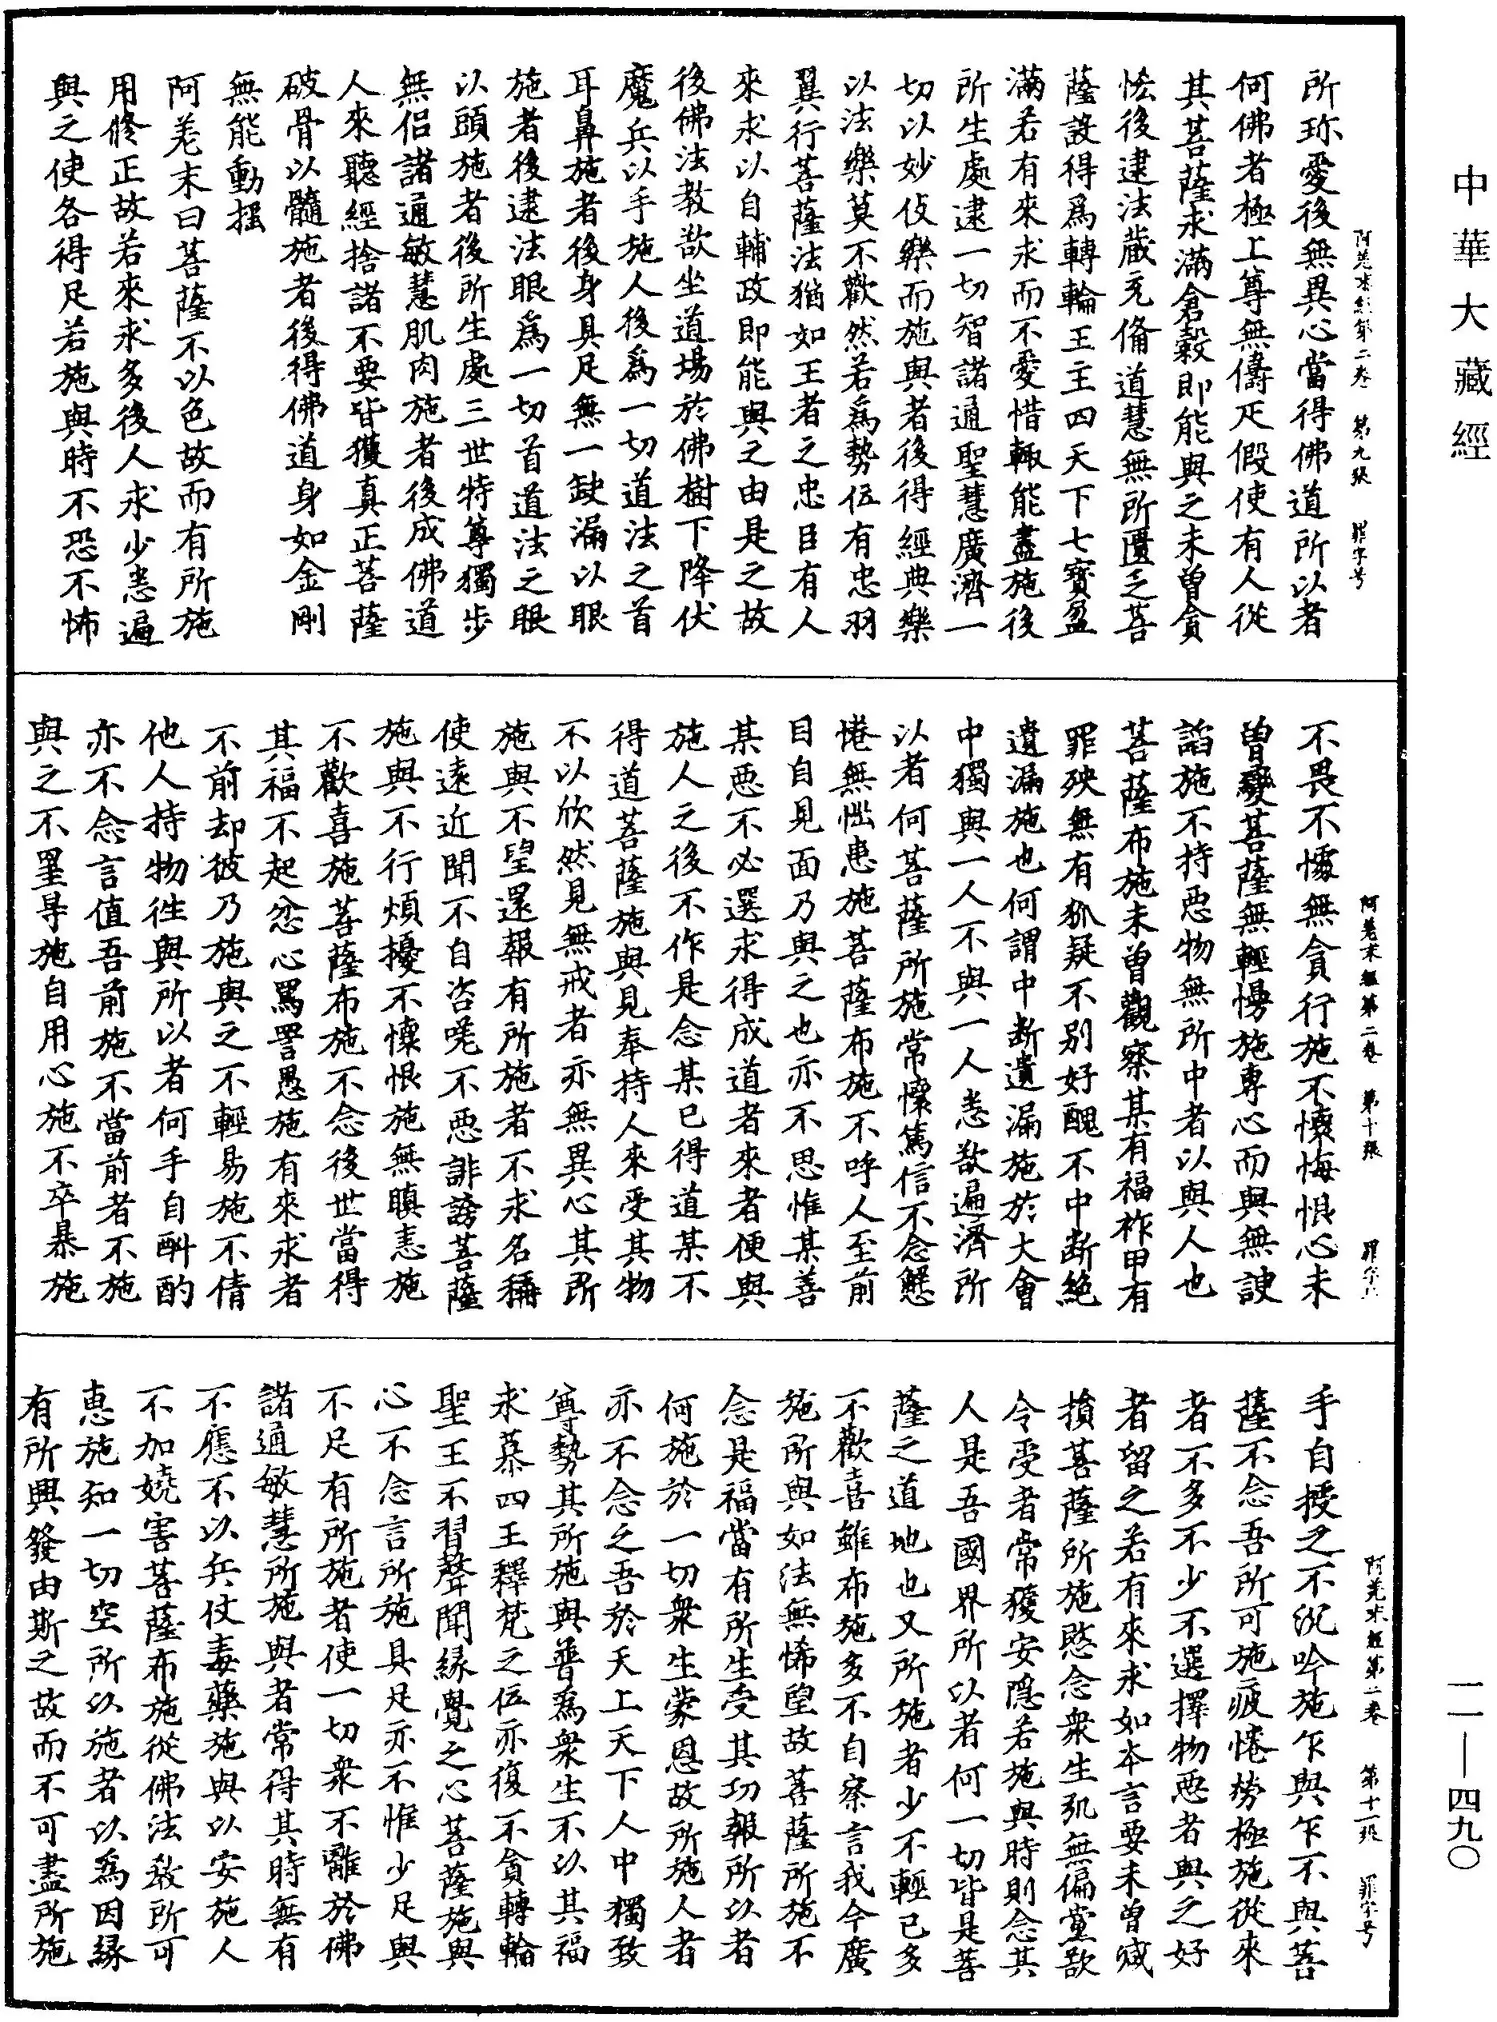 中華大藏經
一一—四九〇
阿差末經第二卷　第九張　罪字号
所珎愛後無異心當得佛道所以者
何佛者極上尊無儔疋假使有人從
其菩薩求滿倉穀即能與之未曾貪
悋後逮法藏充俻道慧無所匱乏菩
薩設得爲轉輪王主四天下七寳盈
滿若有來求而不愛惜輙能盡施後
所生處逮一切智諸通聖慧廣濟一
切以妙伎樂而施與者後得經典樂
以法樂莫不歡然若爲勢位有忠羽
翼行菩薩法猶如王者之忠臣有人
來求以自輔政即能與之由是之故
後佛法教欲坐道場於佛樹下降伏
魔兵以手施人後爲一切道法之首
耳鼻施者後身具足無一缺漏以眼
施者後逮法眼爲一切首道法之眼
以頭施者後所生處三世特尊獨步
無侣諸通敏慧肌肉施者後成佛道
人來聽經捨諸不要皆獲真正菩薩
破骨以髓施者後得佛道身如金剛
無能動揺
阿差末曰菩薩不以色故而有所施
用修正故若來求多後人求少悉遍
與之使各得足若施與時不恐不怖
阿差末經第二卷　第十張　罪字号
不畏不懅無貪行施不懷悔恨心未
曾變菩薩無輕慢施專心而與無諛
諂施不持惡物無所中者以與人也
菩薩布施未曾觀察某有福祚甲有
罪殃無有狐疑不別好醜不中断絶
遺漏施也何謂中断遺漏施於大會
中獨與一人不與一人悉欲遍濟所
以者何菩薩所施常懷篤信不念懈
惓無恠恚施菩薩布施不呼人至前
目自見面乃與之也亦不思惟某善
某惡不必選求得成道者來者便與
施人之後不作是念某已得道某不
得道菩薩施與見奉持人來受其物
不以欣然見無戒者亦無異心其所
施與不望還報有所施者不求名稱
使遠近聞不自咨嗟不惡誹謗菩薩
施與不行煩擾不懷恨施無瞋恚施
不歡喜施菩薩布施不念後世當得
其福不起忿心罵詈愚施有來求者
不前却彼乃施與之不輕易施不倩
他人持物徃與所以者何手自斟酌
亦不念言值吾前施不當前者不施
與之不罣㝵施自用心施不卒暴施
阿差末經第二卷　第十一張　罪字号
手自授之不沉吟施乍與乍不與菩
薩不念吾所可施疲惓勞極施從來
者不多不少不選擇物惡者與之好
者留之若有來求如本言要未曾減
損菩薩所施愍念衆生死無偏黨欲
令受者常獲安隠若施與時則念其
人是吾國界所以者何一切皆是菩
薩之道地也又所施者少不輕已多
不歡喜雖布施多不自察言我今廣
施所與如法無悕望故菩薩所施不
念是福當有所生受其功報所以者
何施於一切衆生蒙恩故所施人者
亦不念之吾於天上天下人中獨致
尊勢其所施與普爲衆生不以其福
求慕四王釋梵之位亦復不貪轉輪
聖王不習聲聞緣覺之心菩薩施與
心不念言所施具足亦不惟少足與
不足有所施者使一切衆不離於佛
諸通敏慧所施與者常得其時無有
不應不以兵仗毒藥施與以安施人
不加嬈害菩薩布施從佛法教所可
惠施知一切空所以施者以爲因緣
有所興發由斯之故而不可盡所施